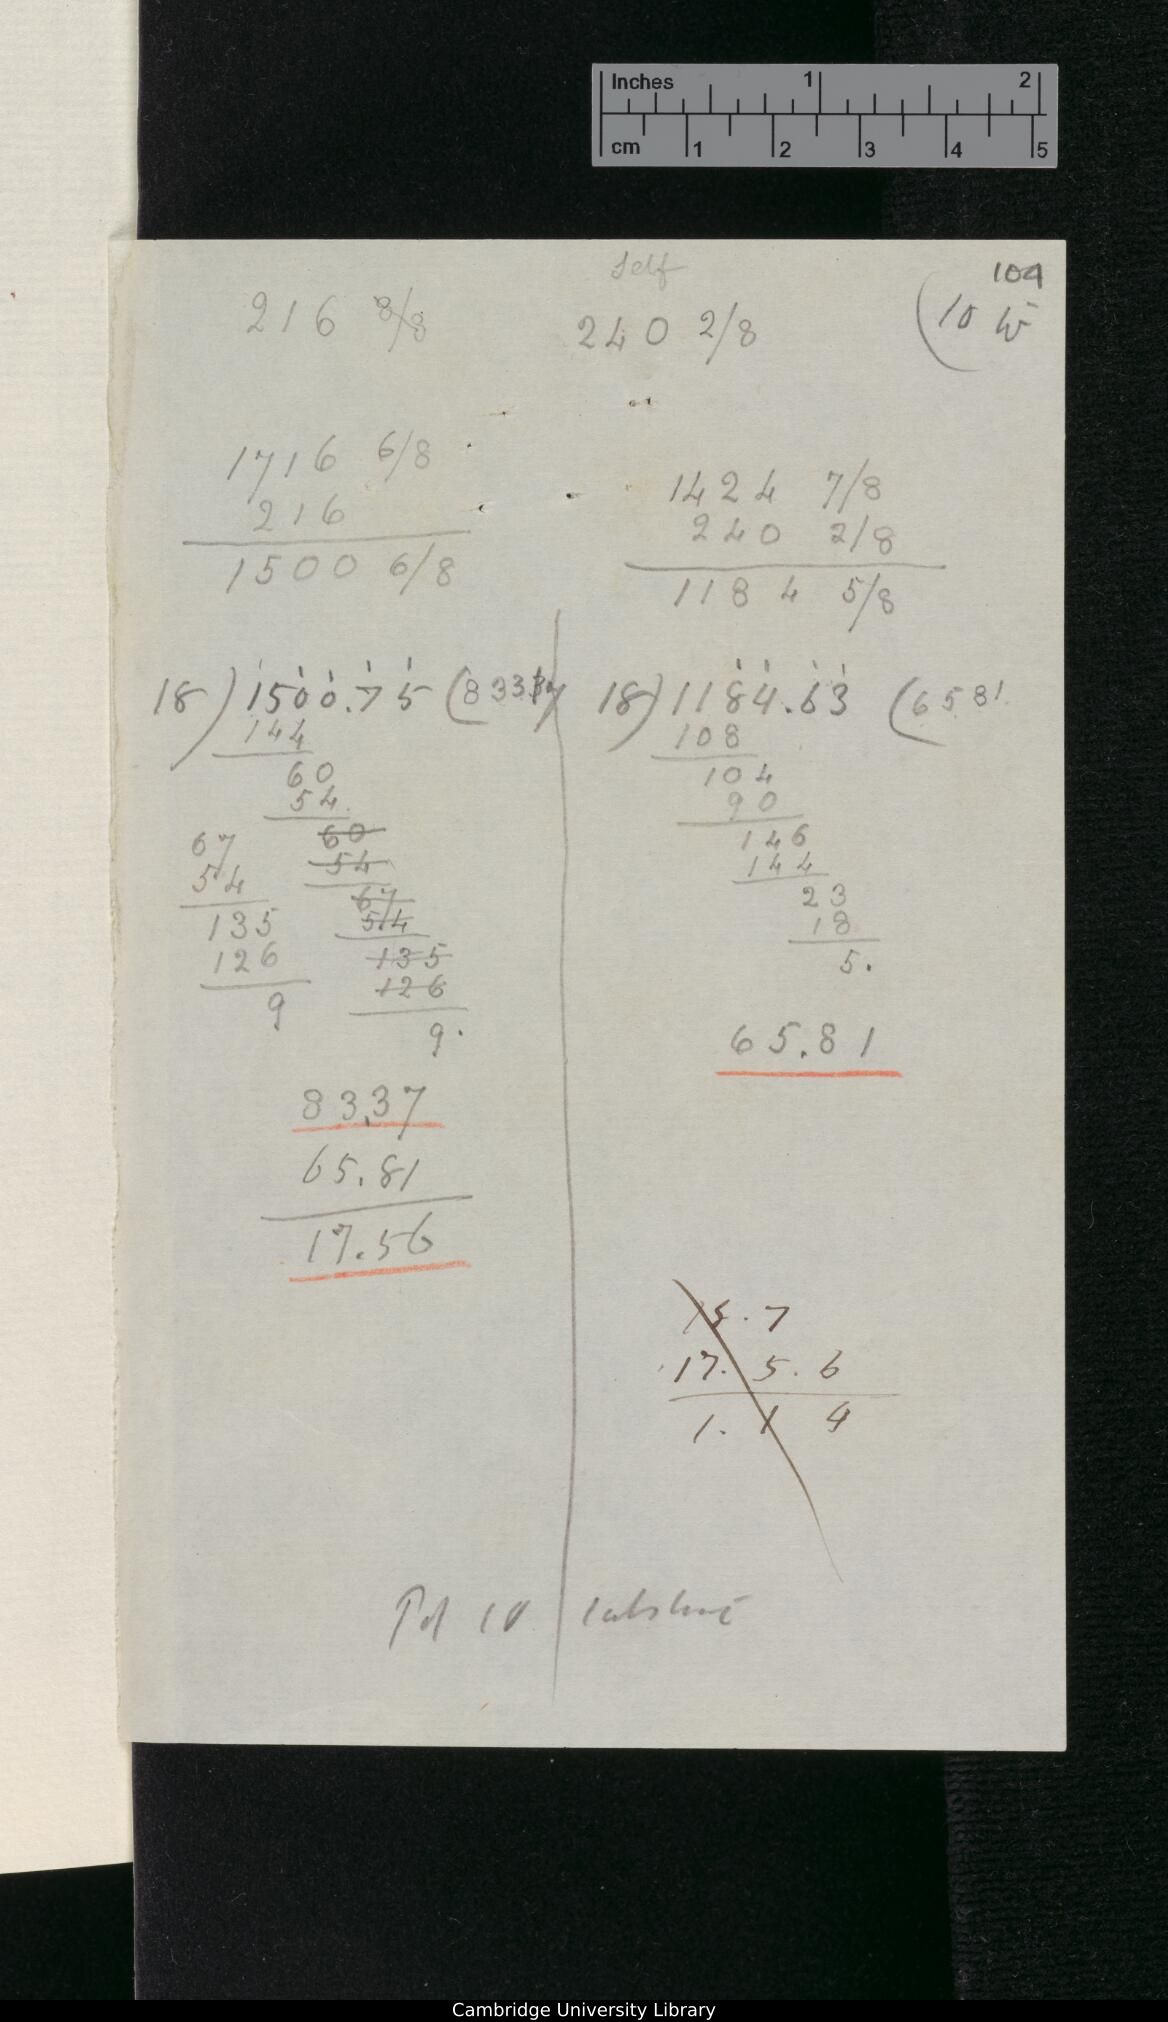 Inches 1 2
cm 1 2 3 4 5
104
Self
216 8/8
240 2/8
(10
1716 6/8
216
1500 6/8
1424 7/8
240 2/8
1184 5/8
18)1500.75(833
144
60
54
60
54
67
54
135
126
9.
67
54
135
126
9
83.37
65.81
17.56
18)1184.63(6581
108
104
90
146
144
23
18
5.
65.81
. 7
17. 5. 6
1. 1 4
Cambridge University Library